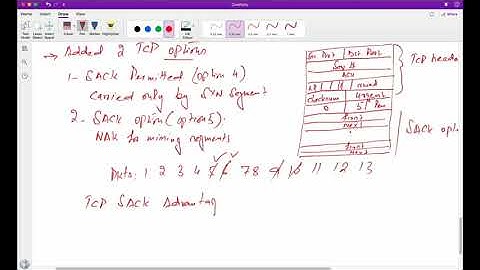 → Added 2 TCP options
1- SACK Permitted (option 4)
Carried only by SYN segment
2- SACK option (option 5)
NAK for missing segments
Pkts: 1 2 3 4 5 6 7 8 9 10 11 12 13
TCP SACK Advantag
Src Port Dst Port
Seq #
ACK
checksum
0 5 Len
TCP header
SACK opti